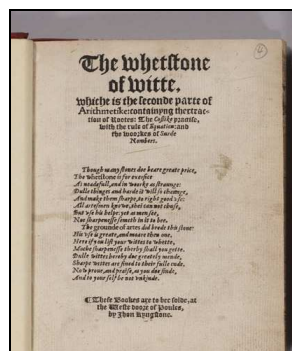 4
The whetstone
of witte,
whiche is the seconde parte of
Arithmetike: containyng thextrac-
tion of Rootes: The Coßike practise,
with the rule of Equation: and
the woorkes of Surde
Nombers.
Though many stones doe beare greate price,
The whetstone is for exersice
As neadefull, and in woorke as straunge:
Dulle thinges and harde it will so chaunge,
And make them sharpe, to right good vse:
All artesmen knowe, thei can not chuse,
But vse his helpe: yet as men see,
Noe sharpenesse semeth in it to bee.
The grounde of artes did brede this stone:
His vse is greate, and moare then one.
Here if you lift your wittes to whette,
Moche sharpenesse therby shall you gette.
Dulle wittes hereby doe greately mende,
Sharpe wittes are fined to their fulle ende.
Now proue, and praise, as you doe finde,
And to your self be not vnkinde.
¶ These Bookes are to bee solde, at
the Weste doore of Poules,
by Jhon Kyngstone.